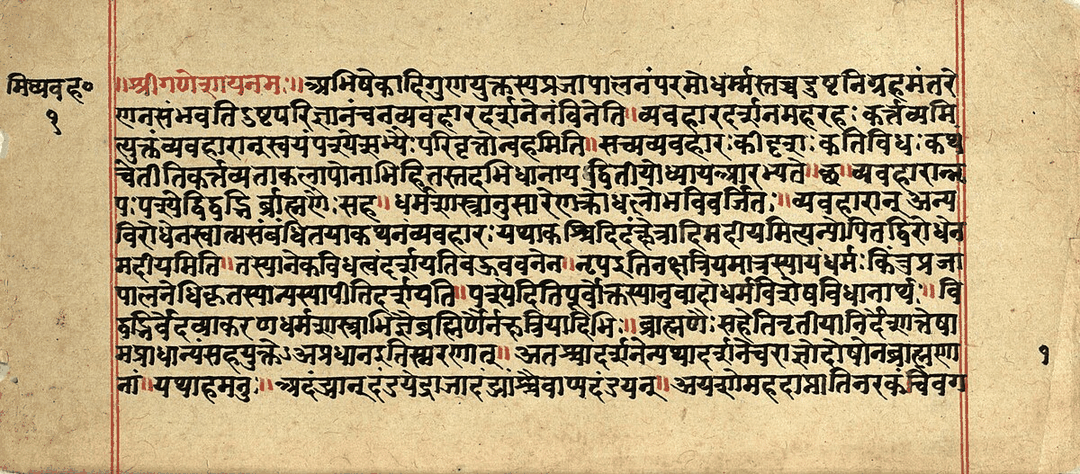 मिव्यवह॰
१
॥श्रीगणेशायनमः॥अभिषेकादिगुणयुक्तस्यप्रजापालनंपरमोधर्म्मस्तच्चदुष्टनिग्रहमंतरे
णानसंभवतिऽष्टपरिज्ञानंचनव्यवहारदर्शनेनंविनेति॥व्यवहारदर्शनमहरहः कर्त्तव्यमि
त्युक्तंव्यवहारान्स्वयंपश्येत्सभ्यैः परिवृत्तोन्वहमिति॥सचव्यवहारः कीदृशः कतिविधः कथं
चेतीतिकर्त्तव्यताकलापोनाभिहितस्तदभिधानाय द्वितीयोध्यायआरभ्यते॥छ॥व्यवहारान्नृ
पः पश्येद्विद्वद्भिर्ब्राह्मणैः सह॥धर्मशास्त्रानुसारेणक्रोधलोभविवर्जितः॥व्यवहारान् अन्य
विरोधेनस्वात्मसंबंधितयाकथनंव्यवहारः यथाकश्चिदिदंक्षेत्रादिमदीयमित्यन्योपितद्विरोधेन
मदीयमिति॥तस्यानेकविधत्वंदर्शयतिबहुवचनेन॥नृपऽतिनक्षत्रियमात्रस्यायंधर्मः किंतुप्रजा
पालनेधिकृतस्यान्यस्यापीतिदर्शयति॥पश्येदितिपूर्वोक्तस्यानुवादोधर्मविशेषविधानार्थः॥वि
द्वद्भिर्वेदव्याकरणधर्मशास्त्राभिज्ञैर्ब्राह्मणैर्नक्षत्रियादिभिः॥ब्राह्मणैः सहेतितृतीयानिर्देशात्तेषा
मप्राधान्यंसहयुक्तेऽअप्रधानऽतिस्मरणात्॥अतश्चादर्शनेन्यथादर्शनेचराज्ञोदोषोनब्राह्मणा
नां॥यथाहमनुः॥अदंड्यान्दंडयन्राजादंड्यांश्चैवाप्यदंडयन्॥अयशोमहदाप्नोतिनरकंचैवग
१